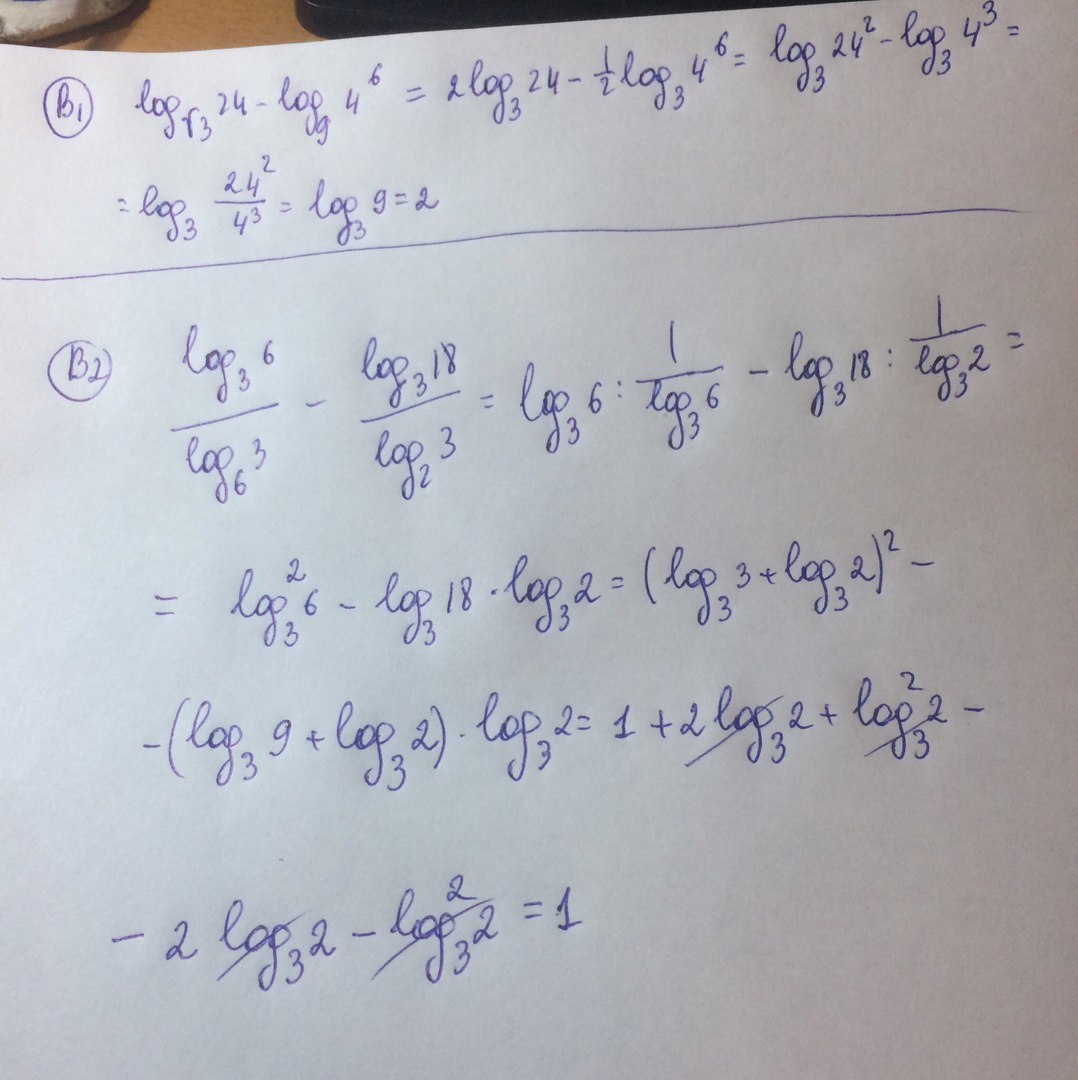 B1 log_√3 24 - log_9 4^6 = 2log_3 24 - 1/2 log_3 4^6 = log_3 24^2 - log_3 4^3 =
= log_3 24^2/4^3 = log_3 9 = 2
B2 log_3 6 / log_6 3 - log_3 18 / log_2 3 = log_3 6 : 1/log_3 6 - log_3 18 : 1/log_3 2 =
= log_3^2 6 - log_3 18 · log_3 2 = (log_3 3 + log_3 2)^2 -
- (log_3 9 + log_3 2) · log_3 2 = 1 + 2 log_3 2 + log_3^2 2 -
- 2 log_3 2 - log_3^2 2 = 1